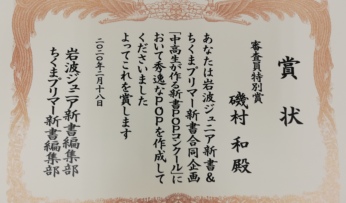 賞状
審査員特別賞
磯村 和殿
あなたは岩波ジュニア新書&
ちくまプリマー新書合同企画
「中高生が作る新書POPコンクール」に
おいて秀逸なPOPを作成して
くださいました
よってこれを賞します
二〇二〇年二月十八日
岩波ジュニア新書編集部
ちくまプリマー新書編集部